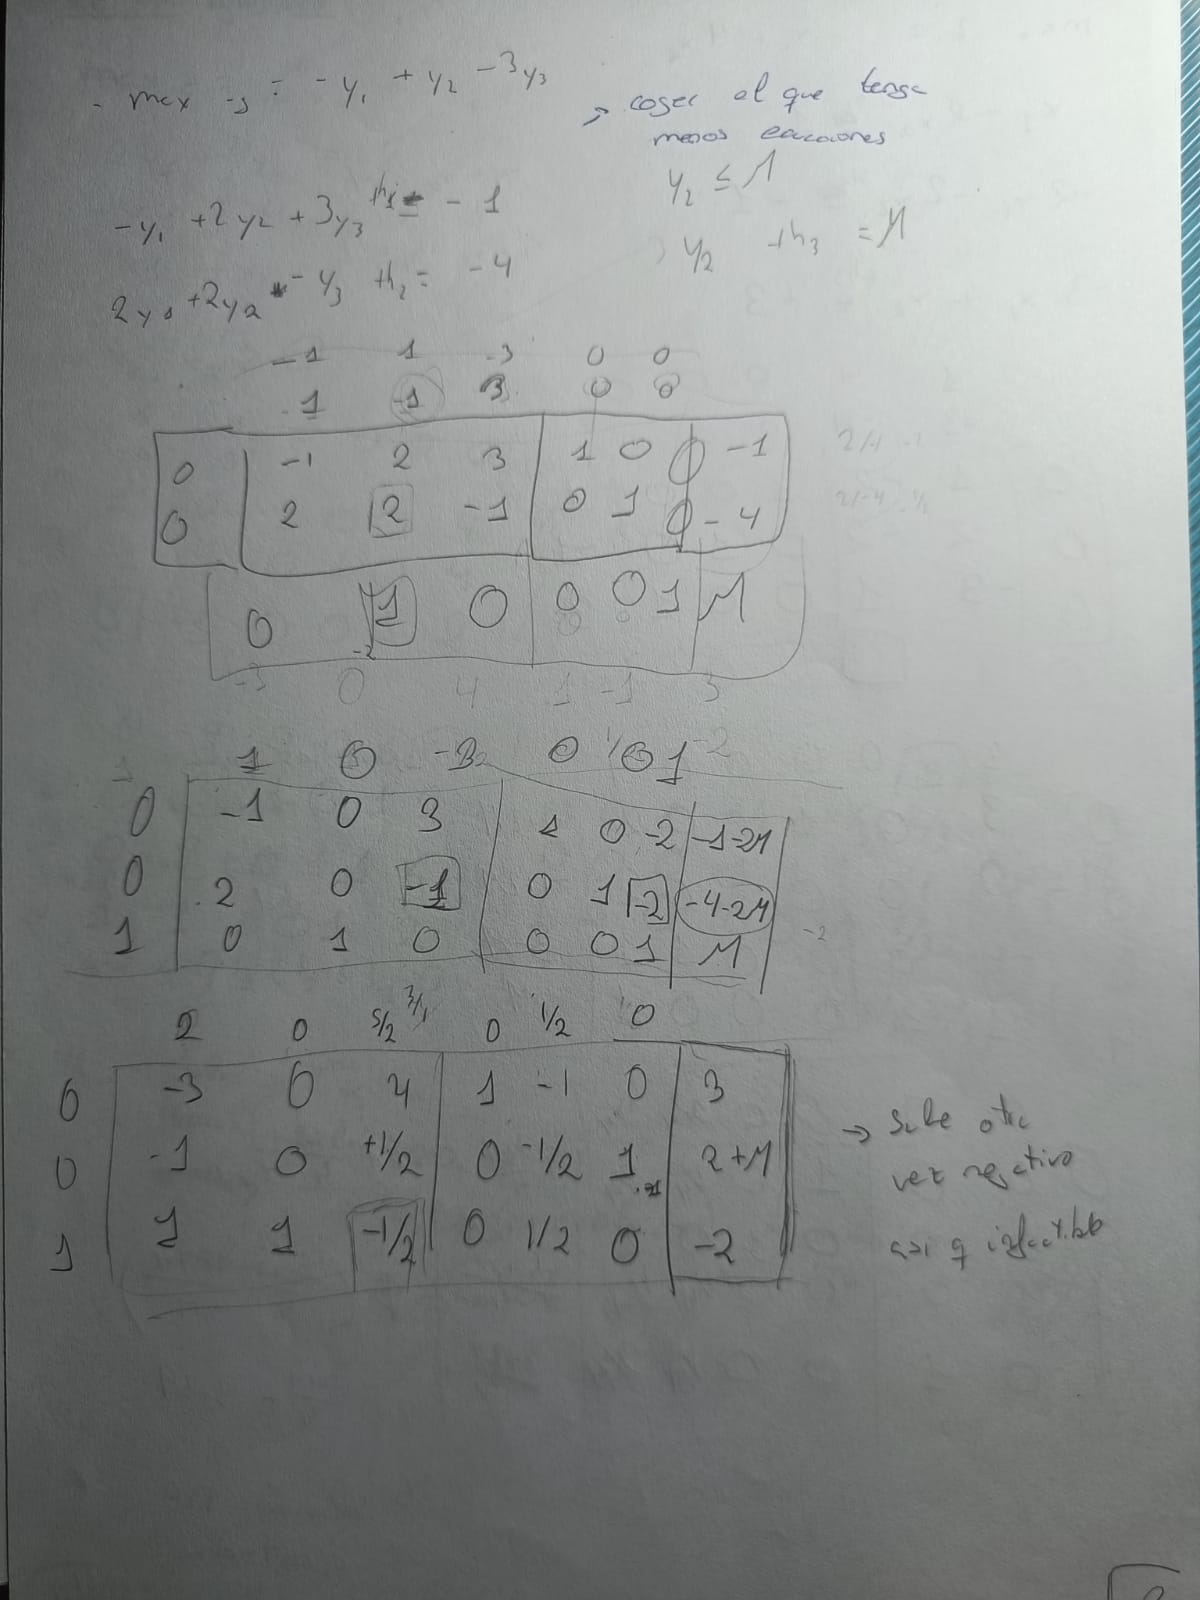 - max -s = -y₁ + y₂ - 3y₃
→ coger el que tenga
menos ecuaciones
-y₁ + 2y₂ + 3y₃ + h₁ = -1
y₂ ≤ M
2y₁ + 2y₂ - y₃ + h₂ = -4
y₂ + h₃ = M
-1 1 -3 0 0
1 -1 3 0 0
0 -1 2 3 1 0 0 -1
0 2 2 -1 0 1 0 -4
0 1 0 0 0 1 M
-2
-3 0 4 1 -1 3
1 0 0 0 1
0 -1 0 3 1 0 -2 -1-2M
0 2 0 -1 0 1 -2 -4-2M
1 0 1 0 0 0 1 M
-2
2 0 5/2 0 1/2 0
0 -3 0 4 1 -1 0 3
0 -1 0 +1/2 0 -1/2 1 2+M
1 1 1 -1/2 0 1/2 0 -2
→ Sale otra
vez negativo
asi q